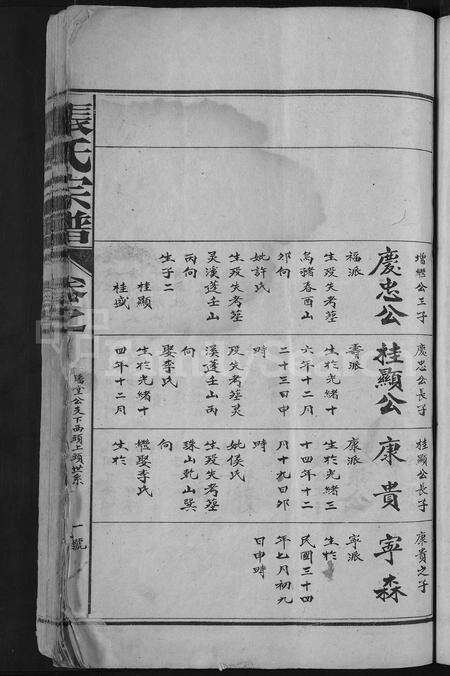 增繼公三子
慶忠公
福派
生歿失考墓
烏豬吞酉山
卯向
妣許氏
生歿失考墓
吴溪蓬壬山
丙向
生子二
桂顯
桂盛
慶忠公長子
桂顯公
壽派
生於光緒十
六年十二月
二十三日申
時
歿失考墓吴
溪蓬壬山丙
向
娶李氏
生於光緒十
四年十二月
桂顯公長子
康貴
康派
生於光緒三
十四年十二
月十九日卯
時
妣侯氏
生歿失考墓
珠山乾山巽
向
繼娶李氏
生於
康貴之子
寧森
寧派
生於
民國三十四
年七月初九
日申時
張氏宗譜
卷之
公支下西頭上頭世系
一號